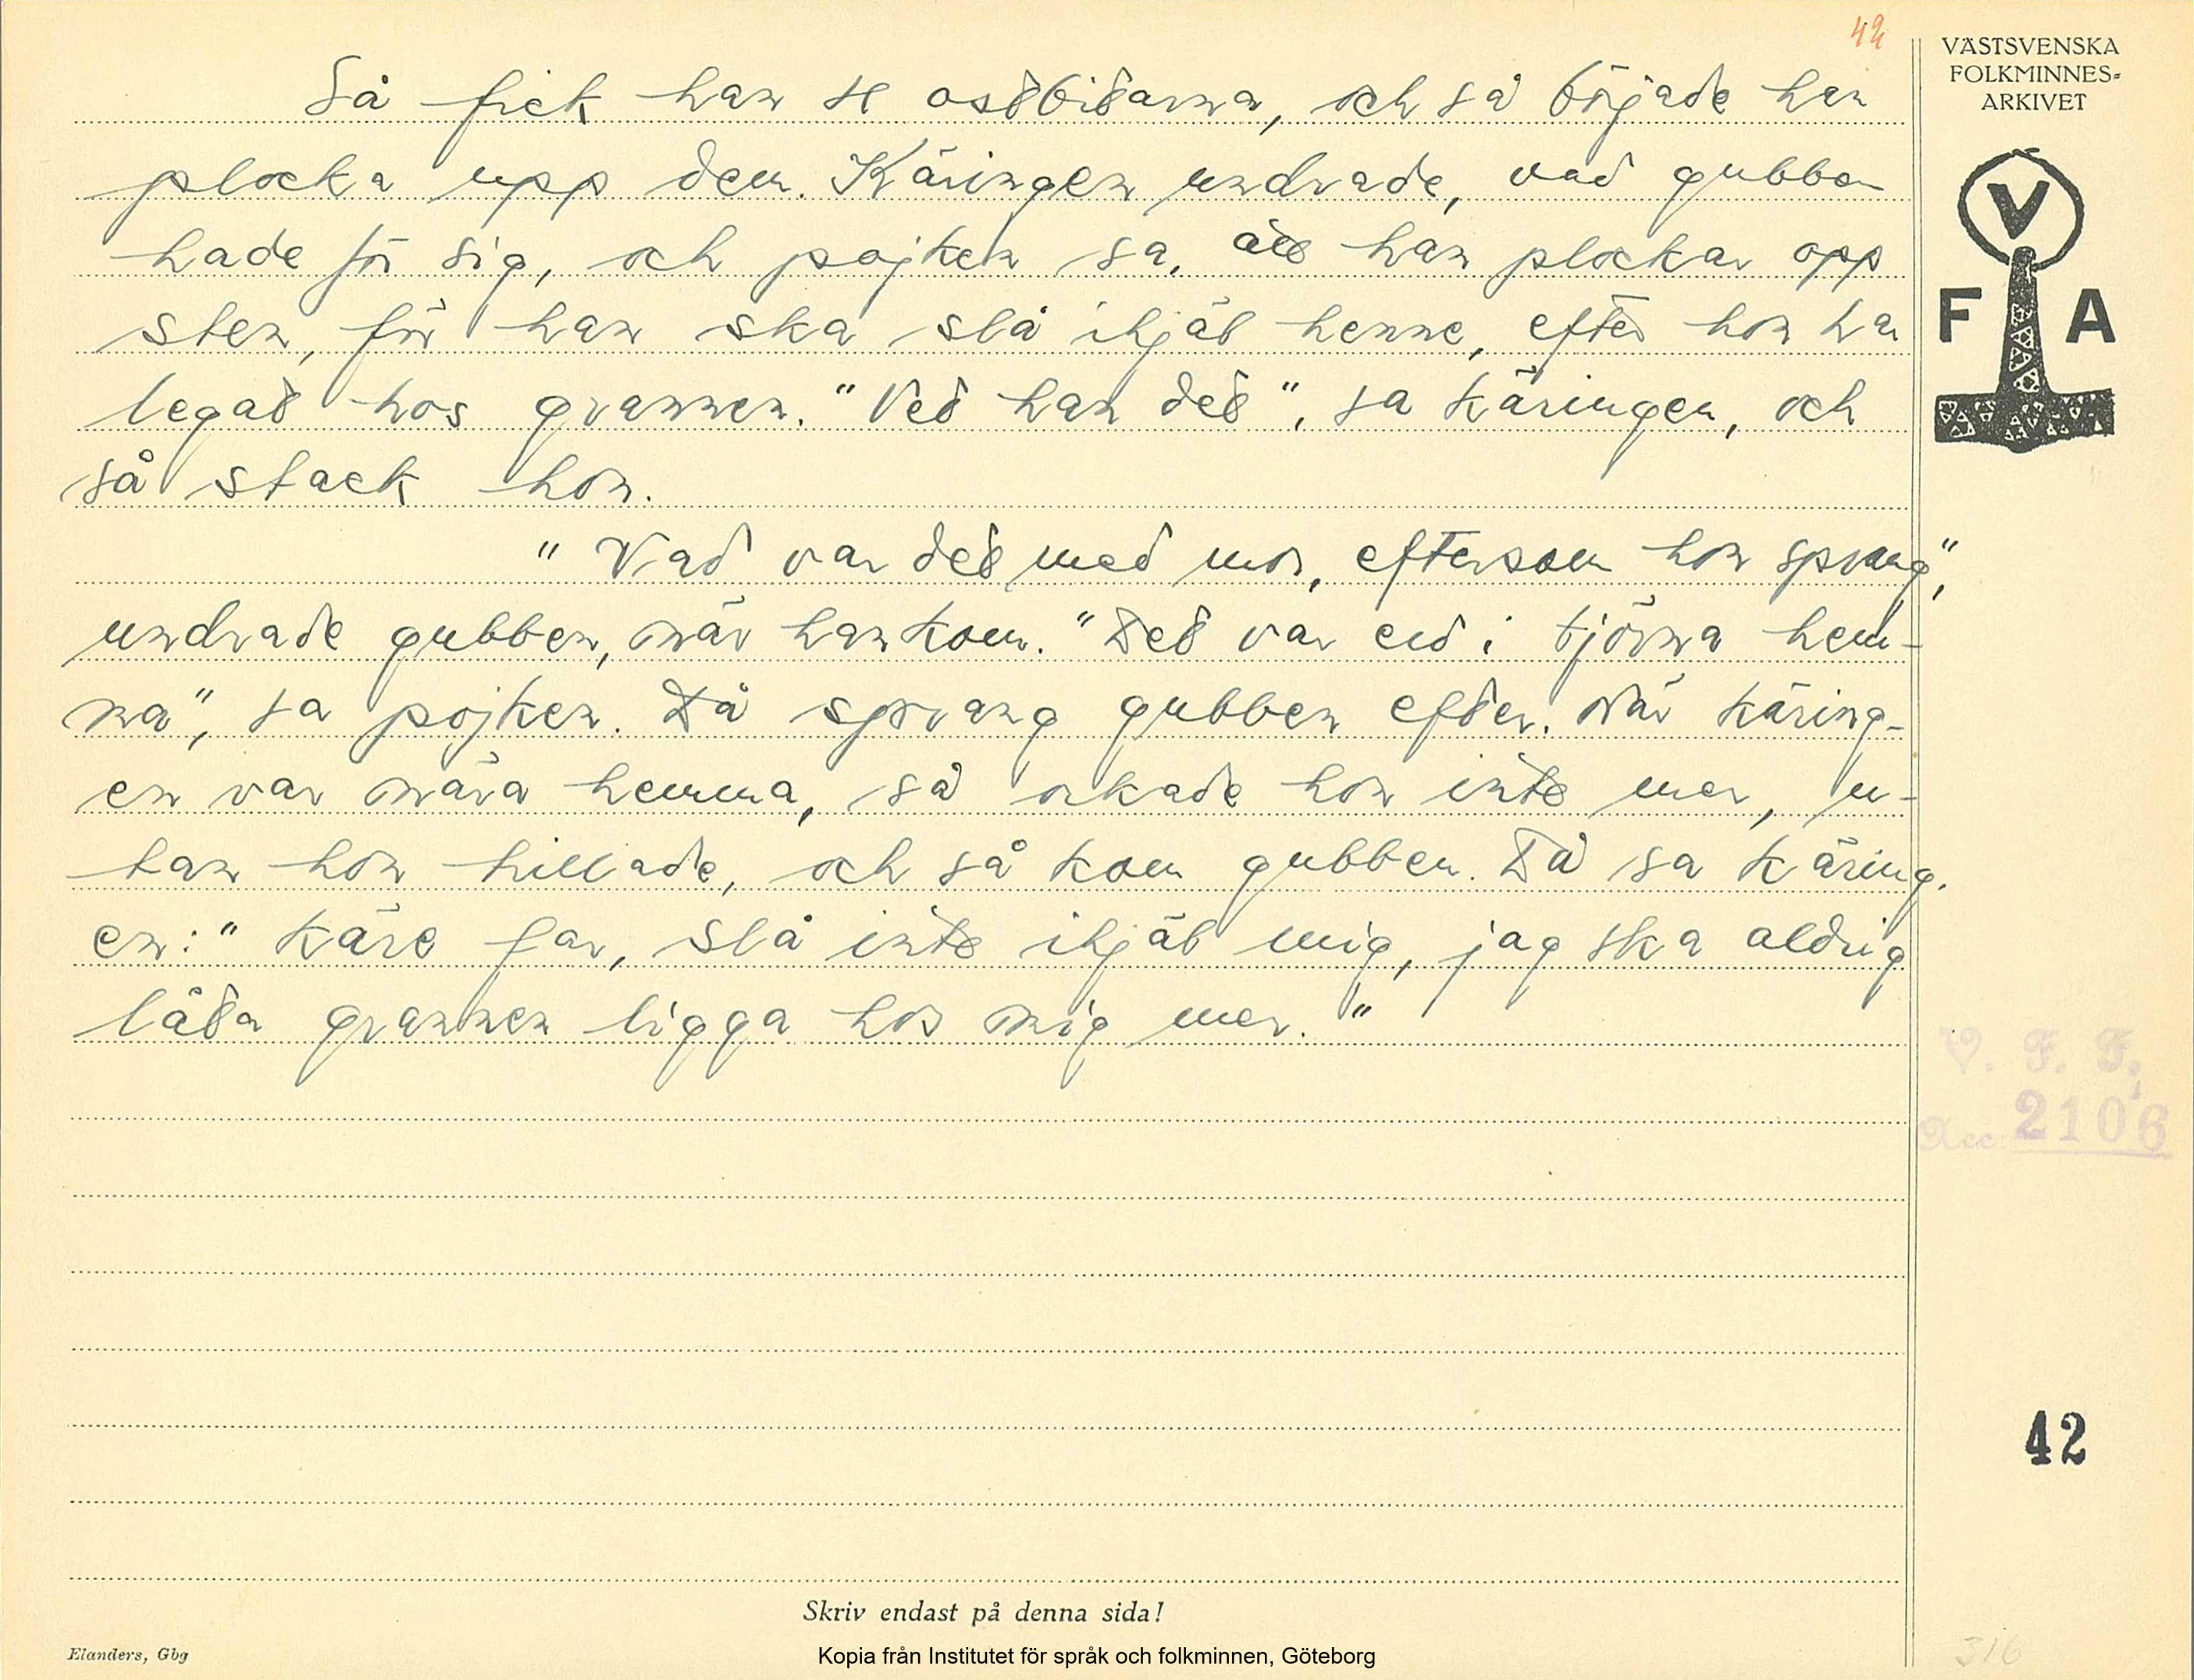 42
VÄSTSVENSKA
FOLKMINNES-
ARKIVET
V
F A
Så fick han se ostbitarna, och så började han
plocka upp dem. Käringen undrade, vad gubben
hade för sig, och pojken sa, att han plockar opp
sten, för han ska slå ihjäl henne, efter hon ha
legat hos grannen. "Vet han det", sa käringen, och
så stack hon.
"Vad var det med mor, eftersom hon sprang",
undrade gubben, när han kom. "Det var eld i tjörna hem-
ma", sa pojken. Då sprang gubben efter. När käring-
en var nära hemma, så orkade hon inte mer, u-
tan hon trillade, och så kom gubben. Då sa käring-
en: "Käre far, slå inte ihjäl mig, jag ska aldrig
låta grannen ligga hos mig mer."
V. F. F.
Acc. 2106
42
Skriv endast på denna sida!
Elanders, Gbg
Kopia från Institutet för språk och folkminnen, Göteborg
316